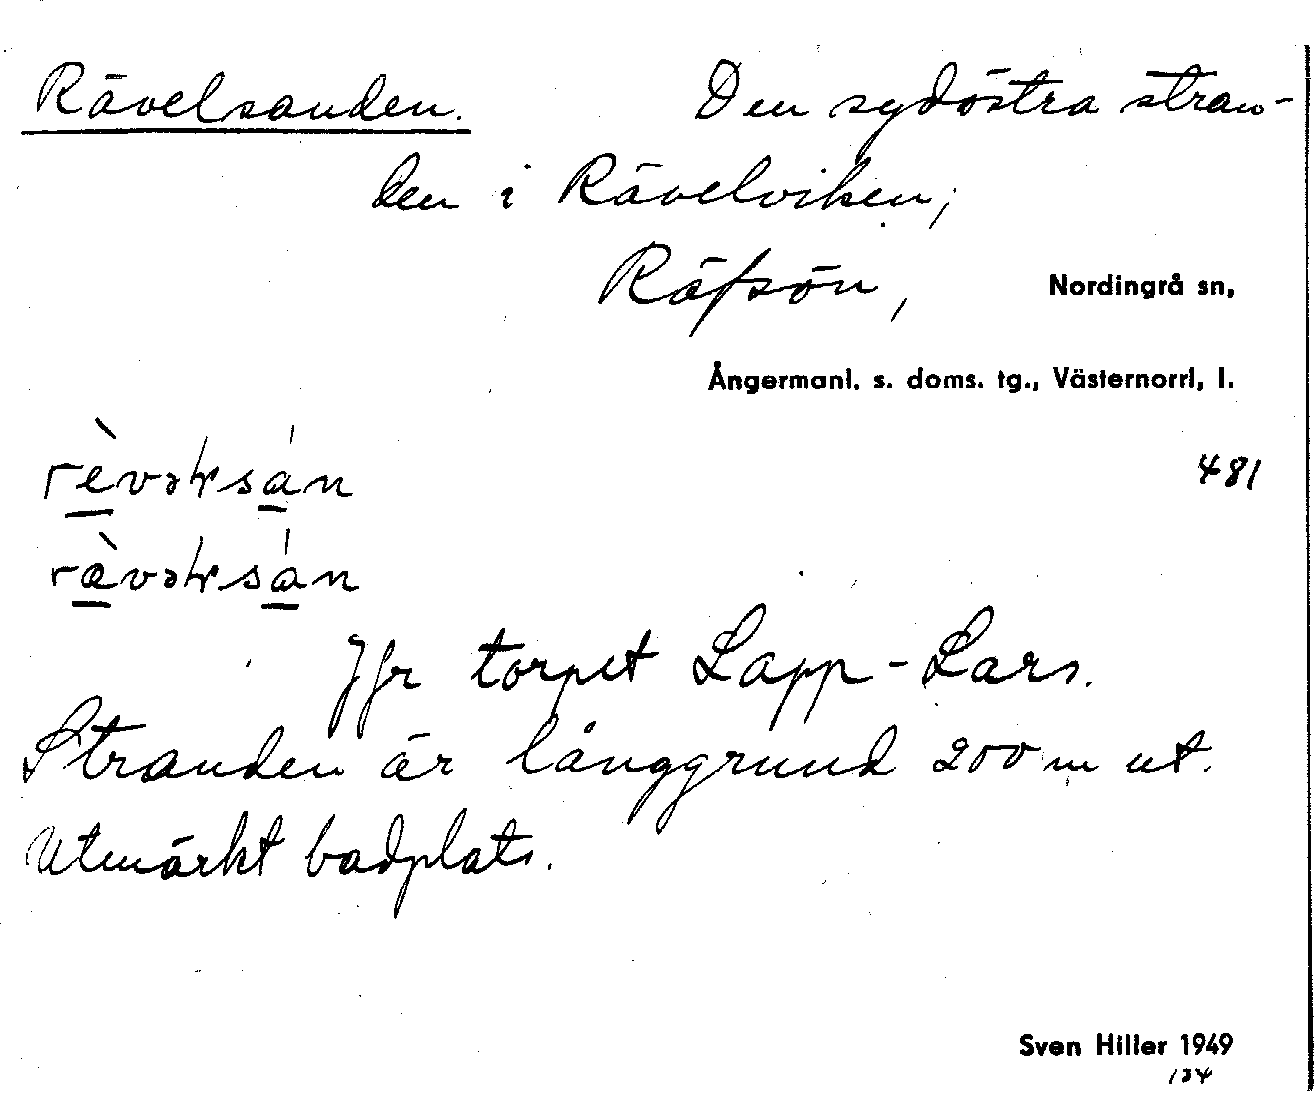 Rävelsanden. Den sydöstra stran-
den i Rävelviken,
Räfsön, Nordingrå sn,
Ångermanl. s. doms. tg., Västernorrl, l.
481
Jfr torpet Lapp-Lars.
Stranden är långgrund 200 m ut.
Utmärkt badplats.
Sven Hiller 1949
134